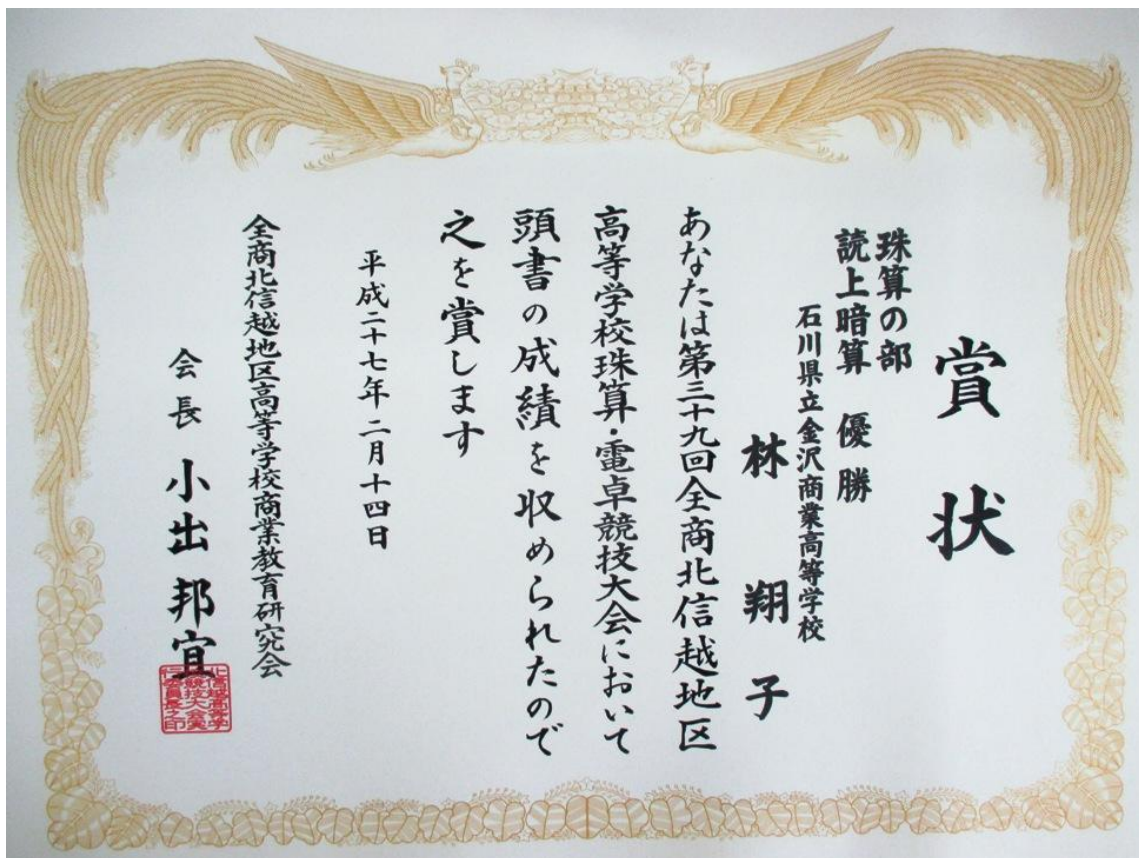 賞状
珠算の部
読上暗算 優勝
石川県立金沢商業高等学校
林翔子
あなたは第三十九回全商北信越地区
高等学校珠算・電卓競技大会において
頭書の成績を収められたので
之を賞します
平成二十七年二月十四日
全商北信越地区高等学校商業教育研究会
会長 小出邦宜